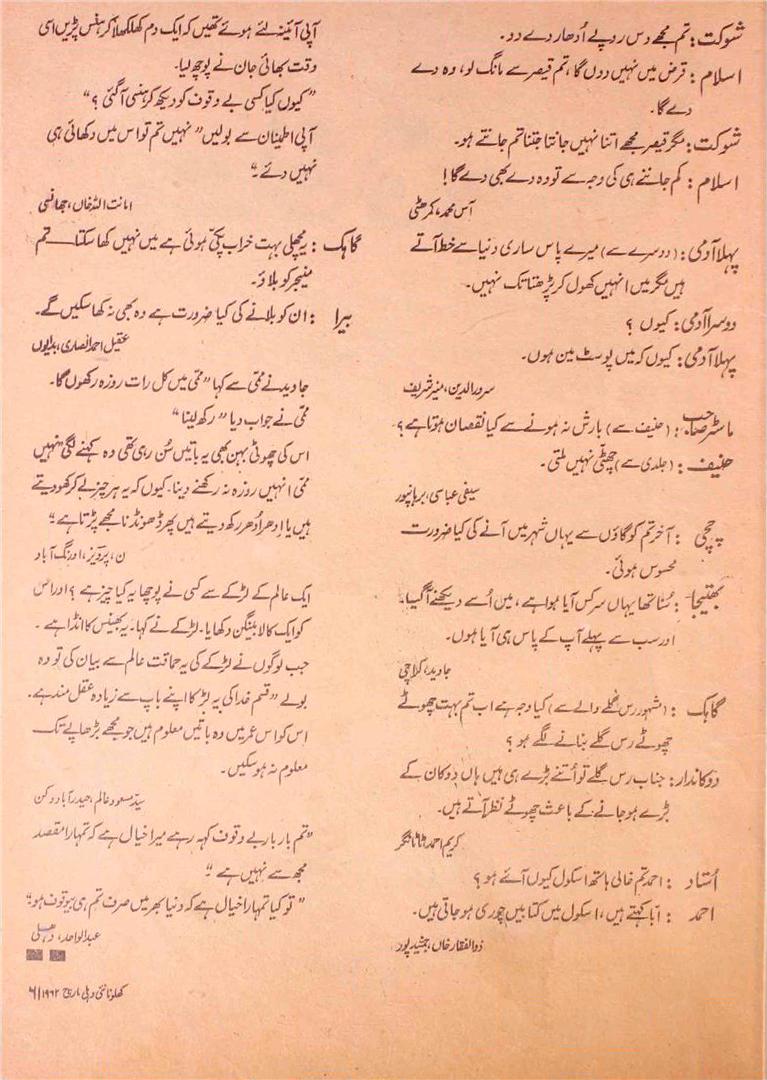 شوکت: تم مجھے دس روپے اُدھار دے دو۔
اسلام: قرض میں نہیں دوں گا، تم قیصر سے مانگ لو، وہ دے
دے گا۔
شوکت: مگر قیصر مجھے اتنا نہیں جانتا جتنا تم جانتے ہو۔
اسلام: کم جاننے ہی کی وجہ سے تو وہ دے بھی دے گا!
آس محمد، کمرہٹی
پہلا آدمی: (دوسرے سے) میرے پاس ساری دنیا سے خط آتے
ہیں مگر میں انہیں کھول کر پڑھتا تک نہیں۔
دوسرا آدمی: کیوں ؟
پہلا آدمی: کیوں کہ میں پوسٹ مین ہوں۔
سرور الدین، منیر شریف
ماسٹر صاحب: (حنیف سے) بارش نہ ہونے سے کیا نقصان ہوتا ہے؟
حنیف: (جلدی سے) چھٹی نہیں ملتی۔
سیفی عباسی، برہانپور
چچی: آخر تم کو گاؤں سے یہاں شہر میں آنے کی کیا ضرورت
محسوس ہوئی۔
بھتیجا: سُنا تھا یہاں سرکس آیا ہوا ہے، میں اُسے دیکھنے آ گیا۔
اور سب سے پہلے آپ کے پاس ہی آیا ہوں۔
جاوید، کراچی
گاہک: (مشہور رس گلے والے سے) کیا وجہ ہے اب تم بہت چھوٹے
چھوٹے رس گلے بنانے لگے ہو؟
دوکاندار: جناب رس گلے تو اُتنے بڑے ہی ہیں ہاں دوکان کے
بڑے ہو جانے کے باعث چھوٹے نظر آتے ہیں۔
کریم احمد، ٹاٹانگر
اُستاد: احمد تم خالی ہاتھ اسکول کیوں آئے ہو؟
احمد: ابّا کہتے ہیں، اسکول میں کتابیں چوری ہو جاتی ہیں۔
ذوالفقار خاں، جمشید پور
آپی آئینہ لئے ہوئے تھیں کہ ایک دم کھلکھلا کر ہنس پڑیں اسی
وقت بھائی جان نے پوچھ لیا۔
"کیوں کیا کسی بے وقوف کو دیکھ کر ہنسی آ گئی؟"
آپی اطمینان سے بولیں "نہیں تم تو اس میں دکھائی ہی
نہیں دئے۔"
امانت اللہ خاں، جھانسی
گاہک: یہ مچھلی بہت خراب پکی ہوئی ہے میں نہیں کھا سکتا تم
منیجر کو بلاؤ۔
بیرا: ان کو بلانے کی کیا ضرورت ہے وہ بھی نہ کھا سکیں گے۔
عقیل احمد انصاری، بدایوں
جاوید نے ممّی سے کہا "ممّی میں کل رات روزہ رکھوں گا۔
ممّی نے جواب دیا "رکھ لینا"
اس کی چھوٹی بہن بھی یہ باتیں سُن رہی تھی وہ کہنے لگی "نہیں
ممّی انہیں روزہ نہ رکھنے دینا۔ کیوں کہ یہ ہر چیز لے کر کھو دیتے
ہیں یا اِدھر اُدھر رکھ دیتے ہیں پھر ڈھونڈنا مجھے پڑتا ہے"
ن، پرویز، اورنگ آباد
ایک عالم کے لڑکے سے کسی نے پوچھا یہ کیا چیز ہے؟ اور اس
کو ایک کالا بینگن دکھایا۔ لڑکے نے کہا۔ یہ بھینس کا انڈا ہے۔
جب لوگوں نے لڑکے کی یہ حماقت عالم سے بیان کی تو وہ
بولے "قسم خدا کی یہ لڑکا اپنے باپ سے زیادہ عقل مند ہے۔
اس کو اس عمر میں وہ باتیں معلوم ہیں جو مجھے بڑھاپے تک
معلوم نہ ہو سکیں۔
سیّد مسعود عالم، حیدرآباد دکن
"تم بار بار بے وقوف کہہ رہے میرا خیال ہے کہ تمہارا مقصد
مجھ سے نہیں ہے"
"تو کیا تمہارا خیال ہے کہ دنیا بھر میں صرف تم ہی بیوقوف ہو"
عبدالواحد، دہلی
کھلونا نئی دہلی مارچ ۱۹۶۲/